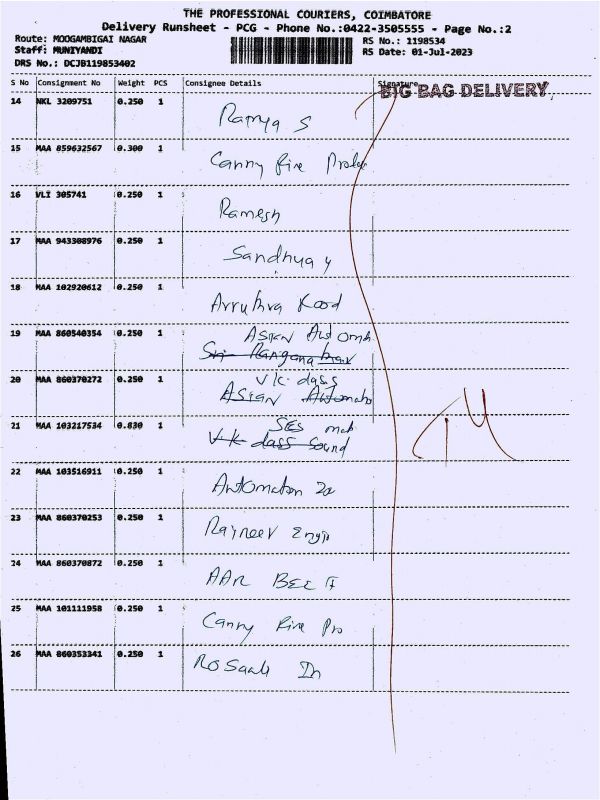 THE PROFESSIONAL COURIERS, COIMBATORE
Delivery Runsheet - PCG - Phone No.:0422-3505555 - Page No.:2
Route: MOOGAMBIGAI NAGAR
RS No.: 1198534
Staff: MUNIYANDI
RS Date: 01-Jul-2023
DRS No.: DCJB119853402
S No Consignment No Weight PCS Consignee Details Signature
BIG BAG DELIVERY,
14 NKL 3209751 0.250 1 Ramya S
15 MAA 859632567 0.300 1 Canny fire
16 VLI 305741 0.250 1 Ramesh
17 MAA 943308976 0.250 1 Sandhya y
18 MAA 102920612 0.250 1
19 MAA 860540354 0.250 1 ASIAN Automh
Sri Rangana
20 MAA 860370272 0.250 1 V.K. dass
ASIAN Automato
21 MAA 103217534 0.830 1 SES
V.K dass Sound
22 MAA 103516911 0.250 1 Automation
23 MAA 860370253 0.250 1 Rajneev Engn
24 MAA 860370872 0.250 1 AAR BEE
25 MAA 101111958 0.250 1 Canny Fire Pro
26 MAA 860353341 0.250 1 In